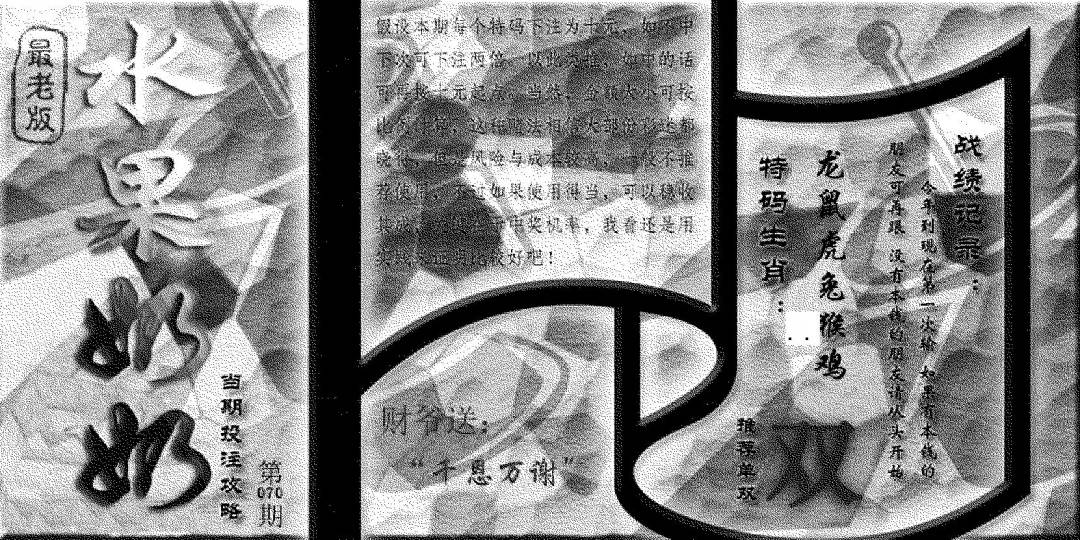 最老版
水果奶奶
当期投注攻略
第
070
期
假设本期每个特码下注为十元，如不中
下次可下注两倍，以此类推，如中的话
可再按十元起点，当然，金额大小可按
比例计算，这种赌法相信大部份彩迷都
晓得，但是风险与成本较高，一般不推
荐使用，不过如果使用得当，可以稳收
中奖机率，我看还是用
比较好吧！
财爷送：
“千恩万谢”
战绩记录：
今年到现在第一次输 如果有本钱的
朋友可再跟 没有本钱的朋友请从头开始
龙鼠虎兔猴鸡
特码生肖：
推荐单双
双